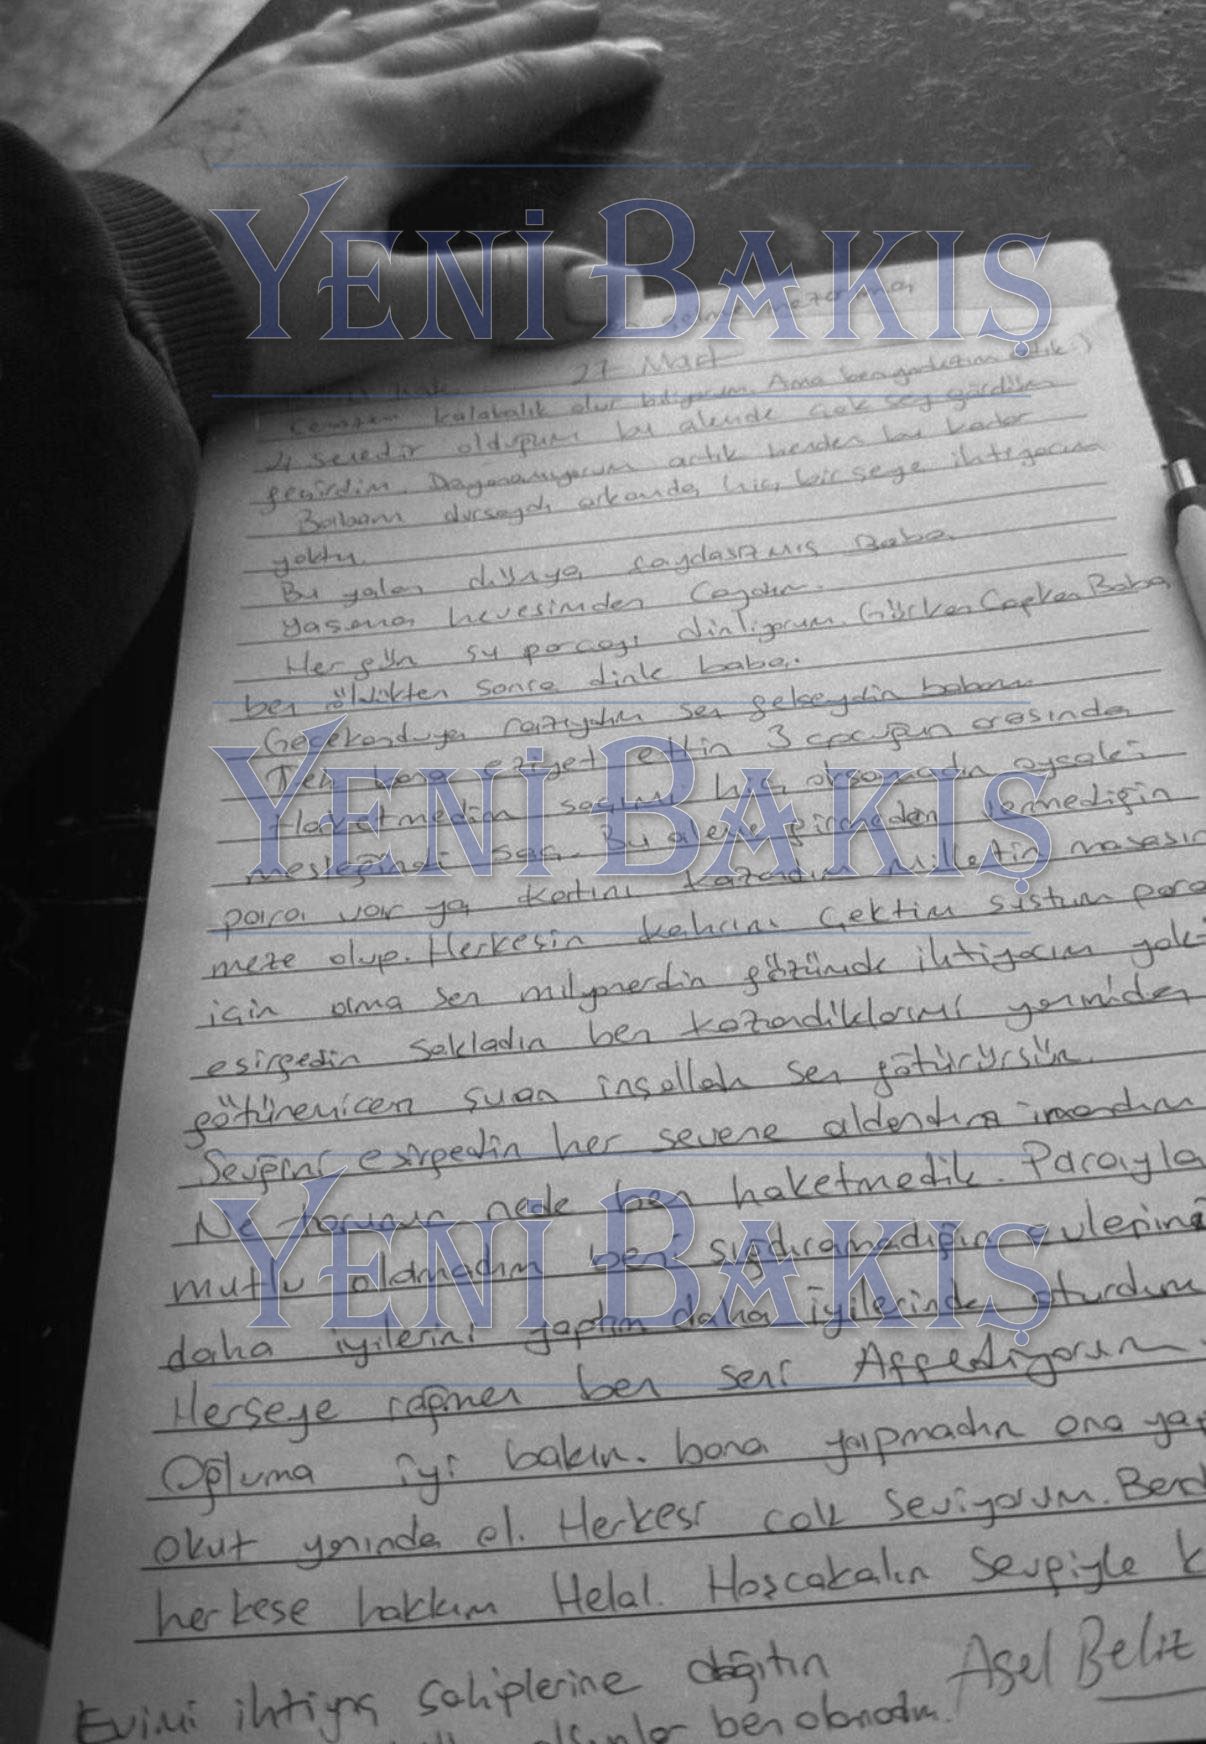 YENİ BAKIŞ
gelme mezarıma,
27 Mart
Cenazem kalabalık olur biliyorum. Ama ben yoruldum artık
4 senedir olduğum bu alemde çok şey gördüm
geçirdim. Dayanamıyorum artık benden bu kadar
Babam dursaydı arkamda, hiç bir şeye ihtiyacım
yoktu.
Bu yalan dünya faydasızmış Baba.
Yaşama hevesimden Caydım.
Her gün şu parçayı dinliyorum. Baba,
ben öldükten sonra dinle baba.
Gecekonduya razıydım sen gelseydin babam
eziyet ettin 3 çocuğun arasında
YENİ BAKIŞ
Haketmedim saçımı hiç okşamadın oysaki
mesleğindi saç. Bu aleme girmeden vermediğin
para var ya katını kazandım milletin masasın
meze olup. Herkesin kahrını çektim sustum para
için ama sen milyonerdin gözümde ihtiyacım yok
esirgedin sakladın ben kazandiklarımı yanımda
götüremicem şuan inşallah sen götürürsün.
Sevgini esirgedin her sevene aldandım inandım
Ne torunun nede ben haketmedik. Parayla
YENİ BAKIŞ
mutlu olamadım beni sığdıramadığın evlerini
daha iyilerini yaptım daha iyilerinde oturdum
Herşeye rağmen ben seni Affediyorum.
Oğluma iyi bakın. bana yapmadın ona yap
okut yanında ol. Herkesi cok seviyorum. Bend
herkese hakkım Helal. Hoşcakalın Sevgiyle k
Asel Beliz
Evimi ihtiyaç sahiplerine dağıtın
ben olamadım.